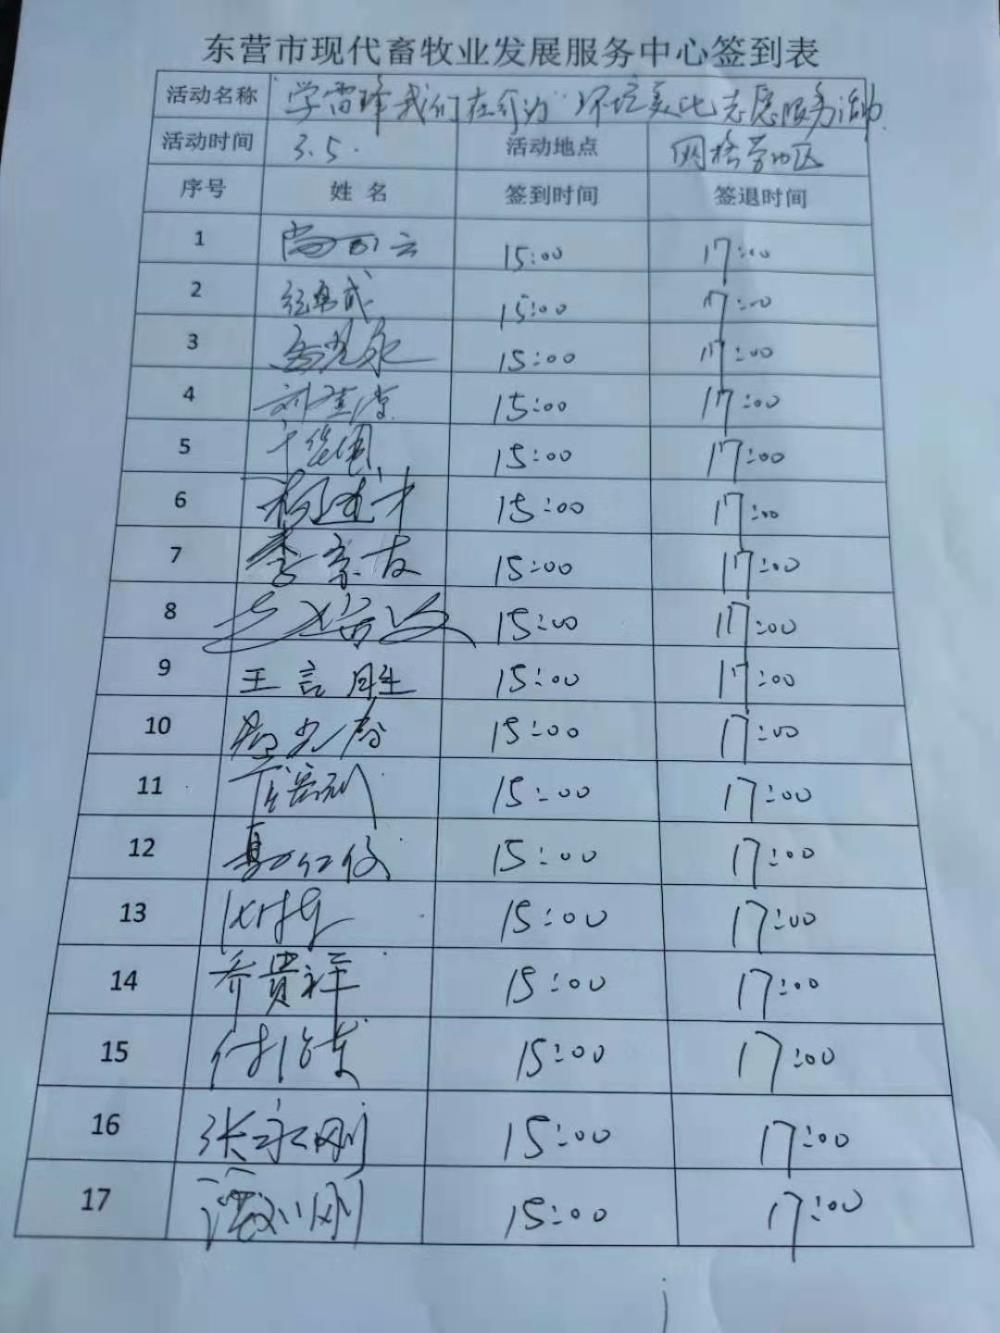 东营市现代畜牧业发展服务中心签到表
活动名称 "学雷锋我们在行动"环境美化志愿服务活动
活动时间 3.5. 活动地点 网格劳动区
序号 姓名 签到时间 签退时间
1 15:00 17:00
2 15:00 17:00
3 15:00 17:00
4 15:00 17:00
5 15:00 17:00
6 杨建才 15:00 17:00
7 李京友 15:00 17:00
8 15:00 17:00
9 王言胜 15:00 17:00
10 15:00 17:00
11 15:00 17:00
12 15:00 17:00
13 15:00 17:00
14 乔贵祥 15:00 17:00
15 15:00 17:00
16 张永刚 15:00 17:00
17 15:00 17:00